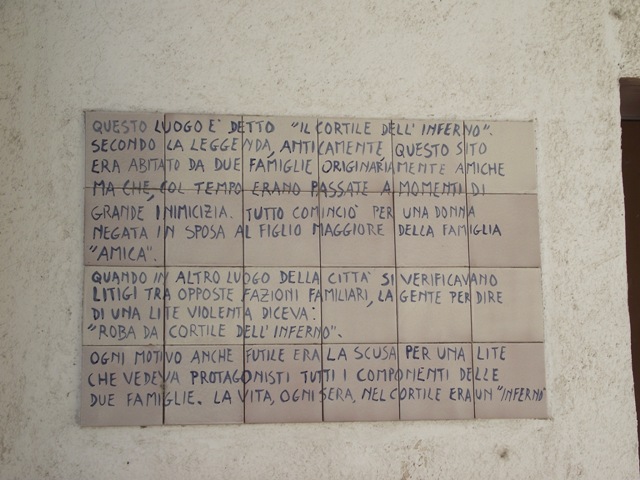 QUESTO LUOGO E' DETTO "IL CORTILE DELL'INFERNO".
SECONDO LA LEGGENDA, ANTICAMENTE, QUESTO SITO
ERA ABITATO DA DUE FAMIGLIE ORIGINARIAMENTE AMICHE
MA CHE, COL TEMPO ERANO PASSATE A MOMENTI DI
GRANDE INIMICIZIA. TUTTO COMINCIO' PER UNA DONNA
NEGATA IN SPOSA AL FIGLIO MAGGIORE DELLA FAMIGLIA
"AMICA".
QUANDO IN ALTRO LUOGO DELLA CITTA' SI VERIFICAVANO
LITIGI TRA OPPOSTE FAZIONI FAMILIARI, LA GENTE PER DIRE
DI UNA LITE VIOLENTA DICEVA:
"ROBA DA CORTILE DELL'INFERNO".
OGNI MOTIVO ANCHE FUTILE ERA LA SCUSA PER UNA LITE
CHE VEDEVA PROTAGONISTI TUTTI I COMPONENTI DELLE
DUE FAMIGLIE. LA VITA, OGNI SERA, NEL CORTILE ERA UN "INFERNO"